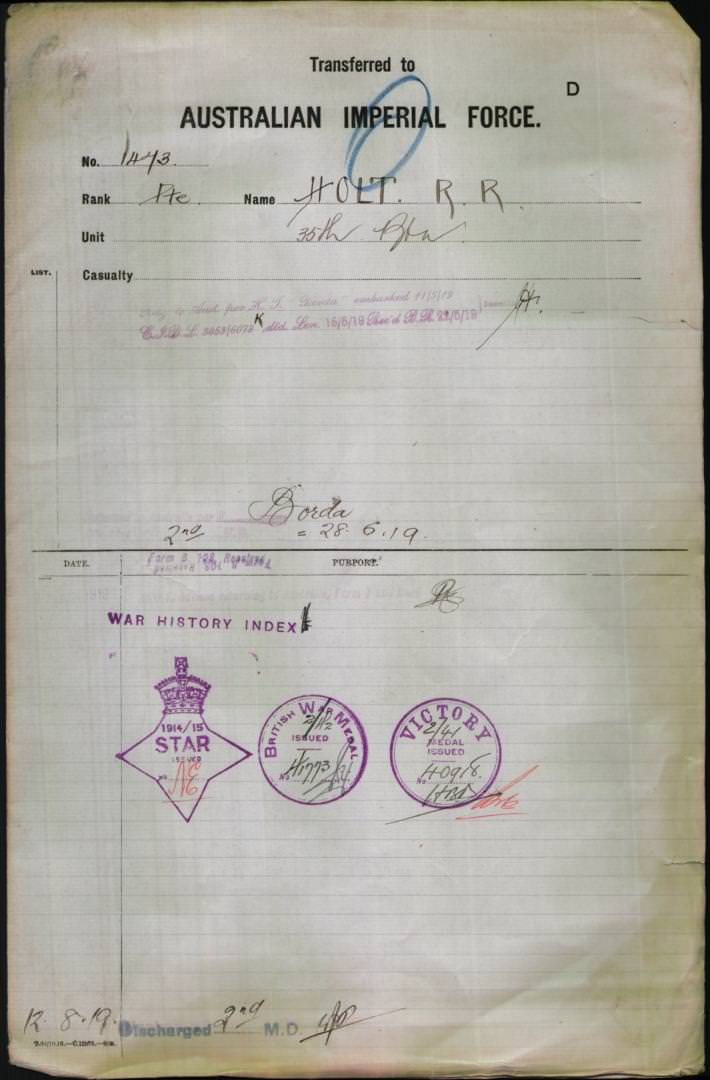 Transferred to
D
AUSTRALIAN IMPERIAL FORCE.
No. 1473.
Rank Pte. Name HOLT. R. R.
Unit 35th Btn.
LIST.
Casualty
to Aust per H. T. "Borda" embarked 11/5/19
C.I.D.L. 3853/6078 K dtd. Lon. 15/5/19 Rec'd B.R. /6/19
Borda
2nd = 28.6.19.
DATE. PURPORT.
Form B. 103 Received
WAR HISTORY INDEX
1914/15
STAR
ISSUED
No.
NE
BRITISH WAR MEDAL
ISSUED
No. 41773
VICTORY
2/41
MEDAL
ISSUED
No. 40918.
12.8.19. Discharged 2nd M.D.